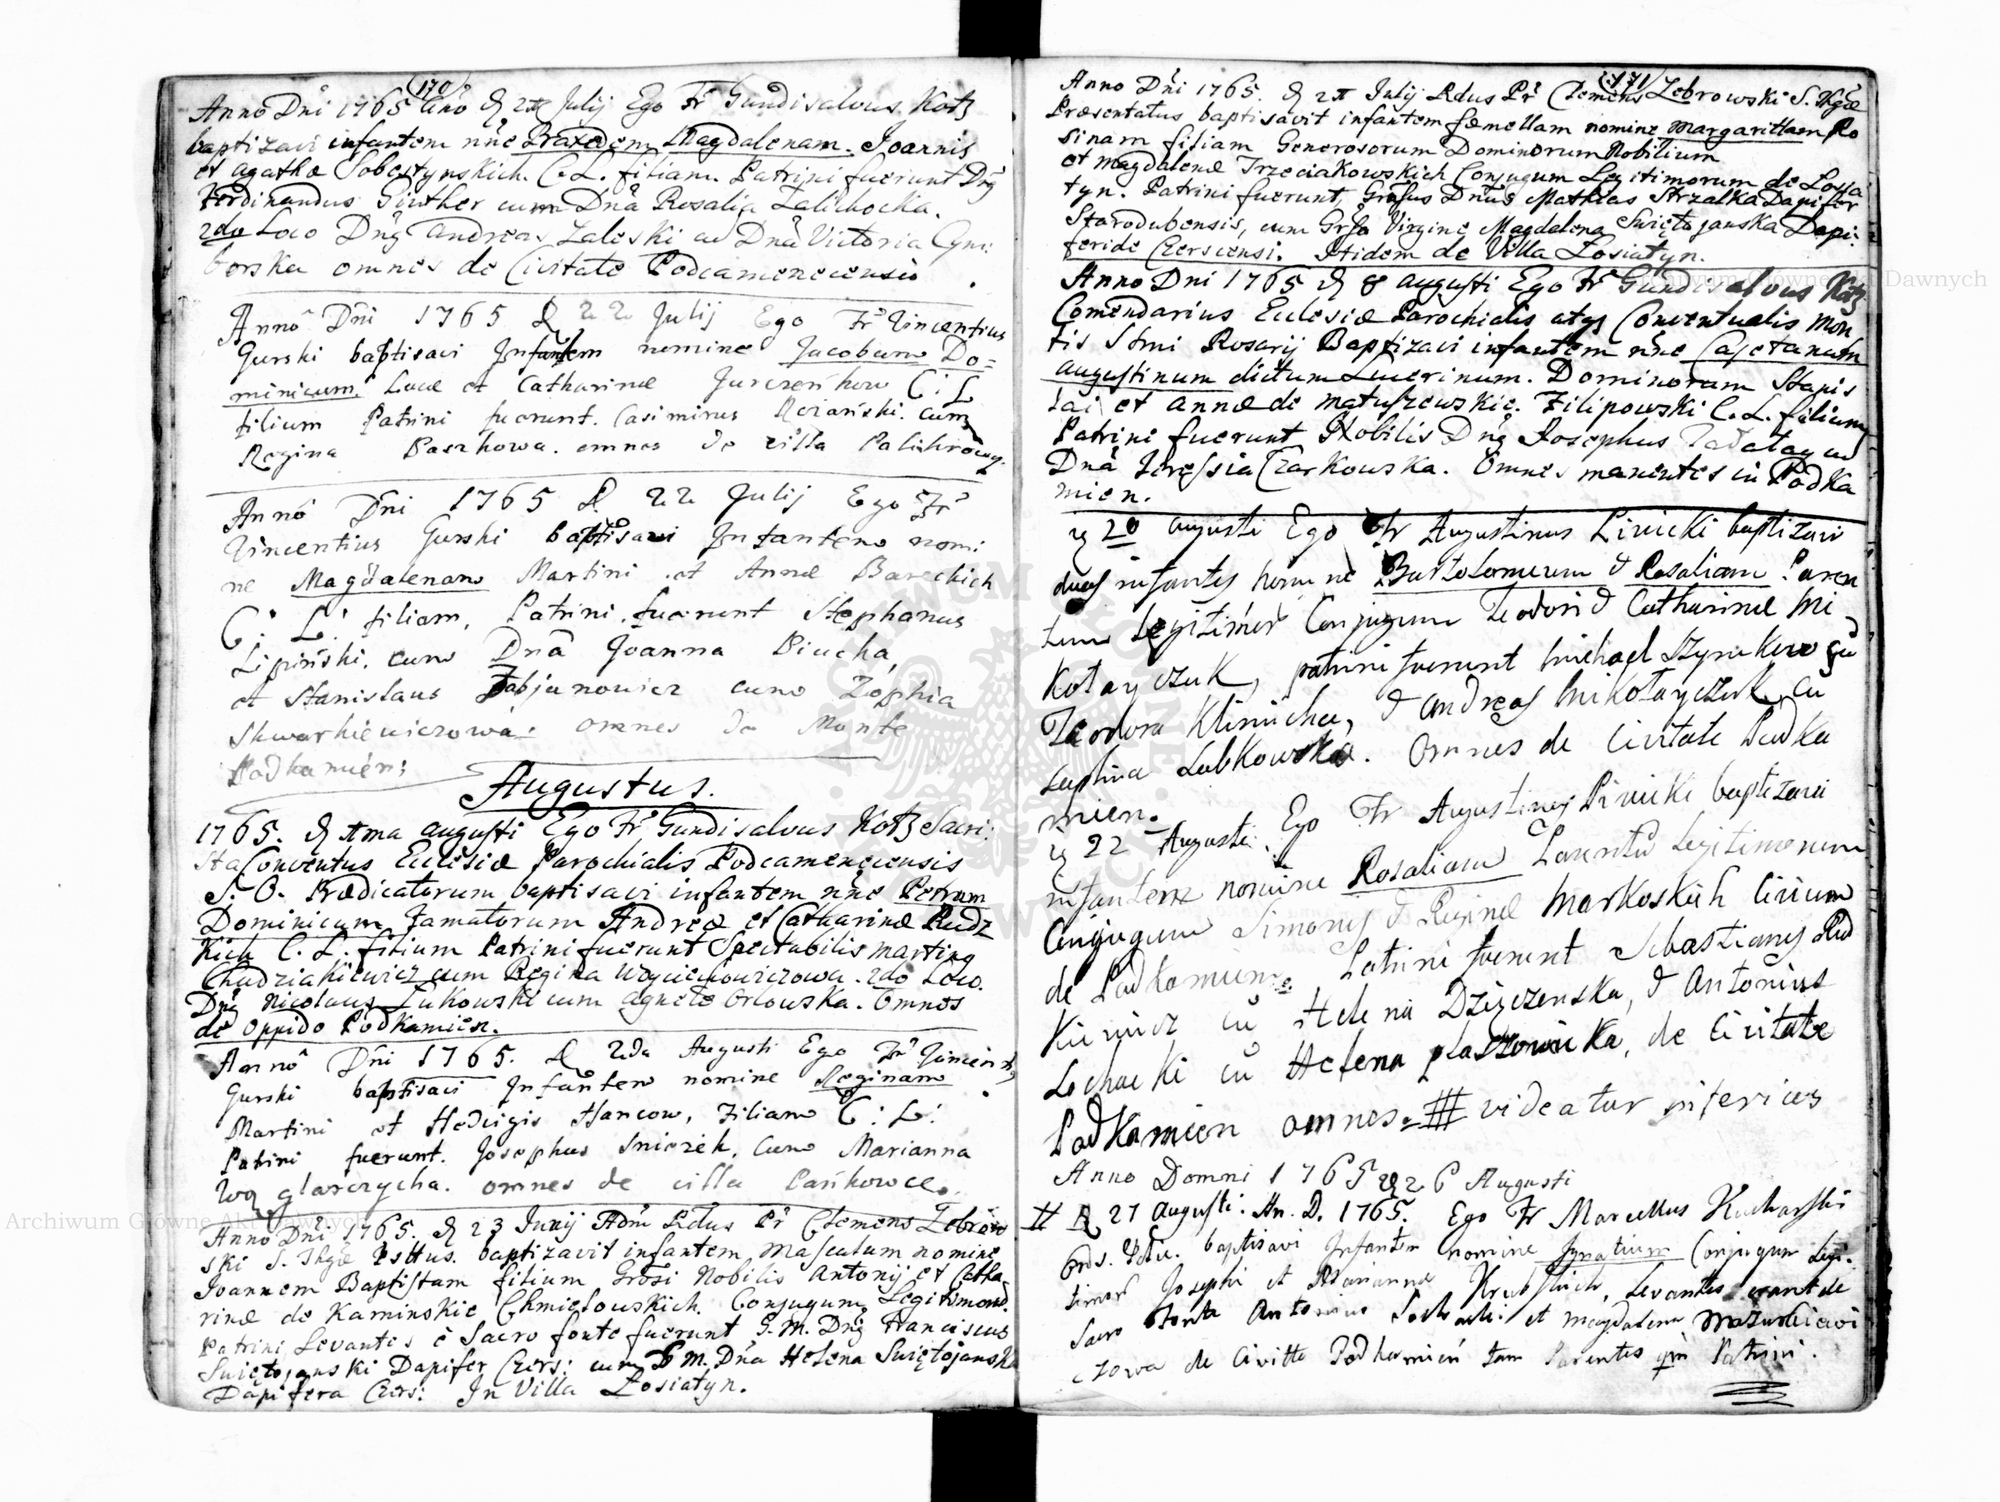 (170)
Anno Dñi 1765 Año D 21 Julij Ego Fr Gundisalvus Kotz
baptizavi infantem nñe Praxedem Magdalenam. Joannis
et agathæ Sobestynskich. C. L. filiam. Patrini fuerunt Dñg
Ferdinandus Ginther cum Dñã Rosalia Zalichocka.
2do Loco Dñg andreas Zaleski cu Dñã Victoria
borska omnes de Civitate Podcamenecensis
Annõ Dñi 1765 D 22 Julij Ego Fr Vincentius
Gurski baptisavi Infantem nomine Jacobum Do=
minicum. Lucæ et Catharinæ Jurczeńkow C: L
filium Patrini fuerunt. Casimirus cum
Regina Paszkowa. omnes de villa Palikrowy.
Annõ Dñi 1765 D 22 Julij Ego Fr
Vincentius Gurski baptisavi Infantem nomi
ne Magdalenam Martini et Annæ Bareckich
C: L: filiam, Patrini fuerunt Stephanus
Lipiński. cum Dnã Joanna Biucha,
et Stanislaus Fabjanowicz cum Zophia
Skwarkiewiczowa: omnes de Monte
Podkamień;
Augustus.
1765. D 1ma augusti Ego Fr Gundisalvus Kotz Sacri:
sta Conventus Ecclesiæ Parochialis Podcamenecensis
S. O. Prædicatorum baptisavi infantem nñe Petrum
Dominicum Famatorum Andreæ et Catharinæ Rudz
kich C. L. filium Patrini fuerunt Spectabilis marting
Chudziakiewicz cum Regina Woyciechowiczowa. 2do Loco.
Dñg Nicolaus Żukowski cum agnete Orlowska. Omnes
de oppido Podkamień.
Annõ Dñi 1765. D 2da Augusti Ego Fr Vincent,
Gurski baptisavi Infantem nomine Reginam
Martini et Hedvigis Hancow, Filiam C: L:
Patrini fuerunt. Josephus Sniezek, cum Marianna
Węglarczycha. omnes de villa Pańkowce.
Anno Dñi 1765. D 23 Junij Adm Rdus Pr Clemens Zebrow
ski S. Thgæ Psttus. baptizavit infantem Masculum nomine
Joannem Baptistam filium Grosi Nobilis Antonij et Catha
rinæ de Kaminskie Chmielowskich. Conjugum Legitimorũ.
Patrini Levantes è Sacro fonte fuerunt G. M. Dñg Franciscus
Swiętojanski Dapifer Czers: cum G. M. Dña Helena Swiętojansk
Dapifera Czers: In Villa Łosiatyn.
(171)
Anno Dñi 1765. D 21 Julij Rdus Pr Clemens Zebrowski S. Thgæ
Præsentatus baptisavit infantem femellam nomine Margaritham Ro
sinam filiam Generosorum Dominorum Nobilium
et Magdalenæ Trzeciakowskich Conjugum Legitimorum de Łosia
tyn. Patrini fuerunt, Grosus Dñus Mathias Strzałka Dapifer
Starodubensis, cum Grsa Virgine Magdalena Swiętojanska Dapi:
feride Czerscensi. Itidem de Villa Łosiatyn.
Anno Dni 1765 D 8 augusti Ego Fr Gundisalvus Kotz
Comendarius Ecclesiæ Parochialis atq Conventualis Mon
tis Stmi Rosarij Baptizavi infantem nñe Cajetanum
augustinum dictum Lucrinum. Dominorum Stanis
lai et Annæ de Matuszewskie. Filipowski C. L. filium
Patrini fuerunt Nobilis Dñg Josephus cu
Dnã Teressia Czarkowska. Omnes manentes in Podka
mien.
D 20 augusti Ego Fr Augustinus Liwicki baptizavi
duos infantes nomine Bartolomeum & Rosaliam Paren
tum Legitimor Conjugum Teodori & Catharinæ Mi
kołayczuk, patrini fuerunt michael Szynkew cũ
Teodora Klimicha, & andreas Mikołayczuk cu
Lubkowska. Omnes de Civitate Podka
mien.
D 22 Augusti. Ego Fr Augustinus Liwicki baptizavi
infantem nomine Rosaliam Parentũ Legitimorum
Conjugum Simonis & Reginæ Markoskich Civium
de Podkamien. Patrini fuerunt Sebastianus Rud
kiewicz cũ Helena Dzięczenska, & Antonius
Lochacki cũ Helena płaszowicka, de Civitate
Podkamien omnes = # videatur inferius
Anno Domni 1765 D 26 Augusti
# D 27 augusti. An. D. 1765. Ego Fr Marcellus Kucharski
Ords. Prdic. baptisavi Infantem nomine Ignatium Conjugum Legi:
timor Josephi et Mariannæ Levantes erant de
Sacro Fonte Antonius et Magdalena Mazurkiewi
czowa de Civitte Podkamień tam Parentes qm Patrini.
Archiwum Główne Akt Dawnych
Archiwum Główne Akt Dawnych
ARCHIWUM GŁÓWNE AKT DAWNYCH